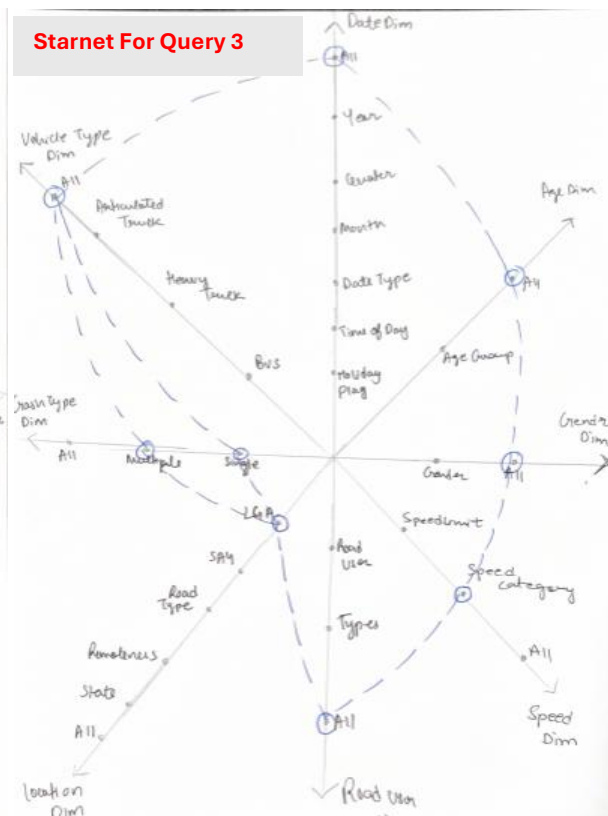 Starnet For Query 3
Date Dim
All
Year
Quater
Month
Date Type
Time of Day
Holiday
Flag
Vehicle Type
Dim
All
Articulated
Truck
Heavy
Truck
Bus
Age Dim
All
Age Group
Crash Type
Dim
All
Multiple
Single
Gender
Dim
Gender
All
LGA
SA4
Road
Type
Remoteness
State
All
Location
Dim
Road
User
Types
All
Road User
Speed Limit
Speed
category
All
Speed
Dim